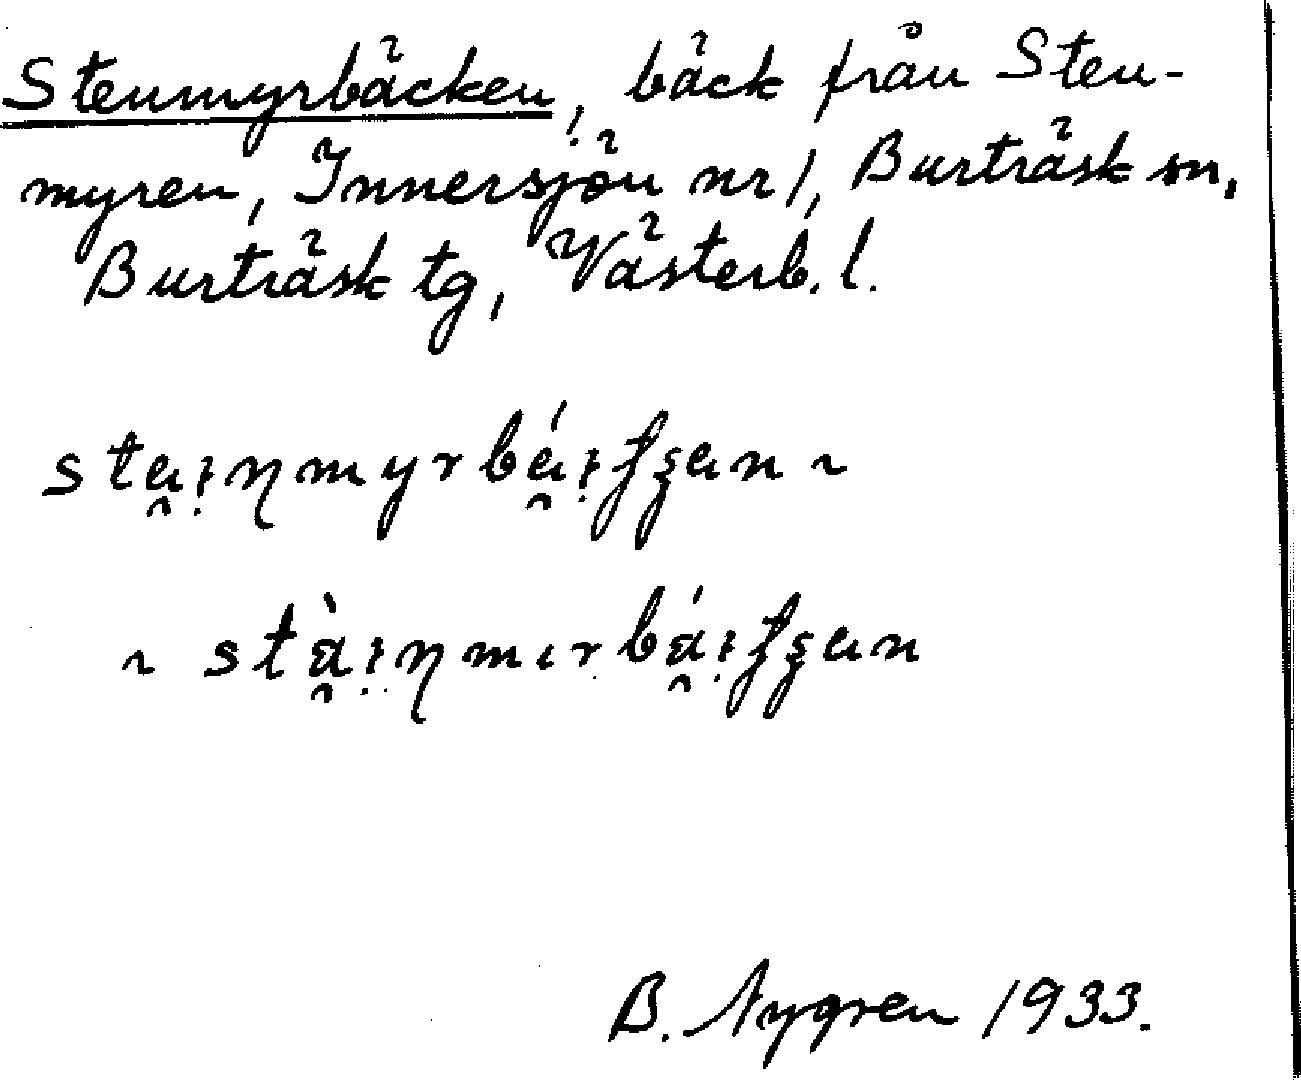 Stenmyrbäcken, bäck från Sten-
myren, Innersjön nr 1, Burträsk sn,
Burträsk tg, Västerb. l.
B. Nygren 1933.